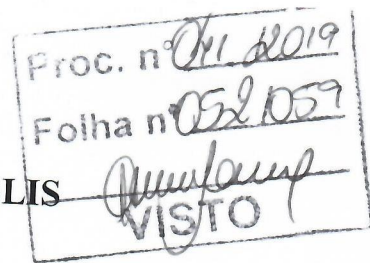 Proc. nº 041 /2019
Folha nº 052/059
LIS
VISTO